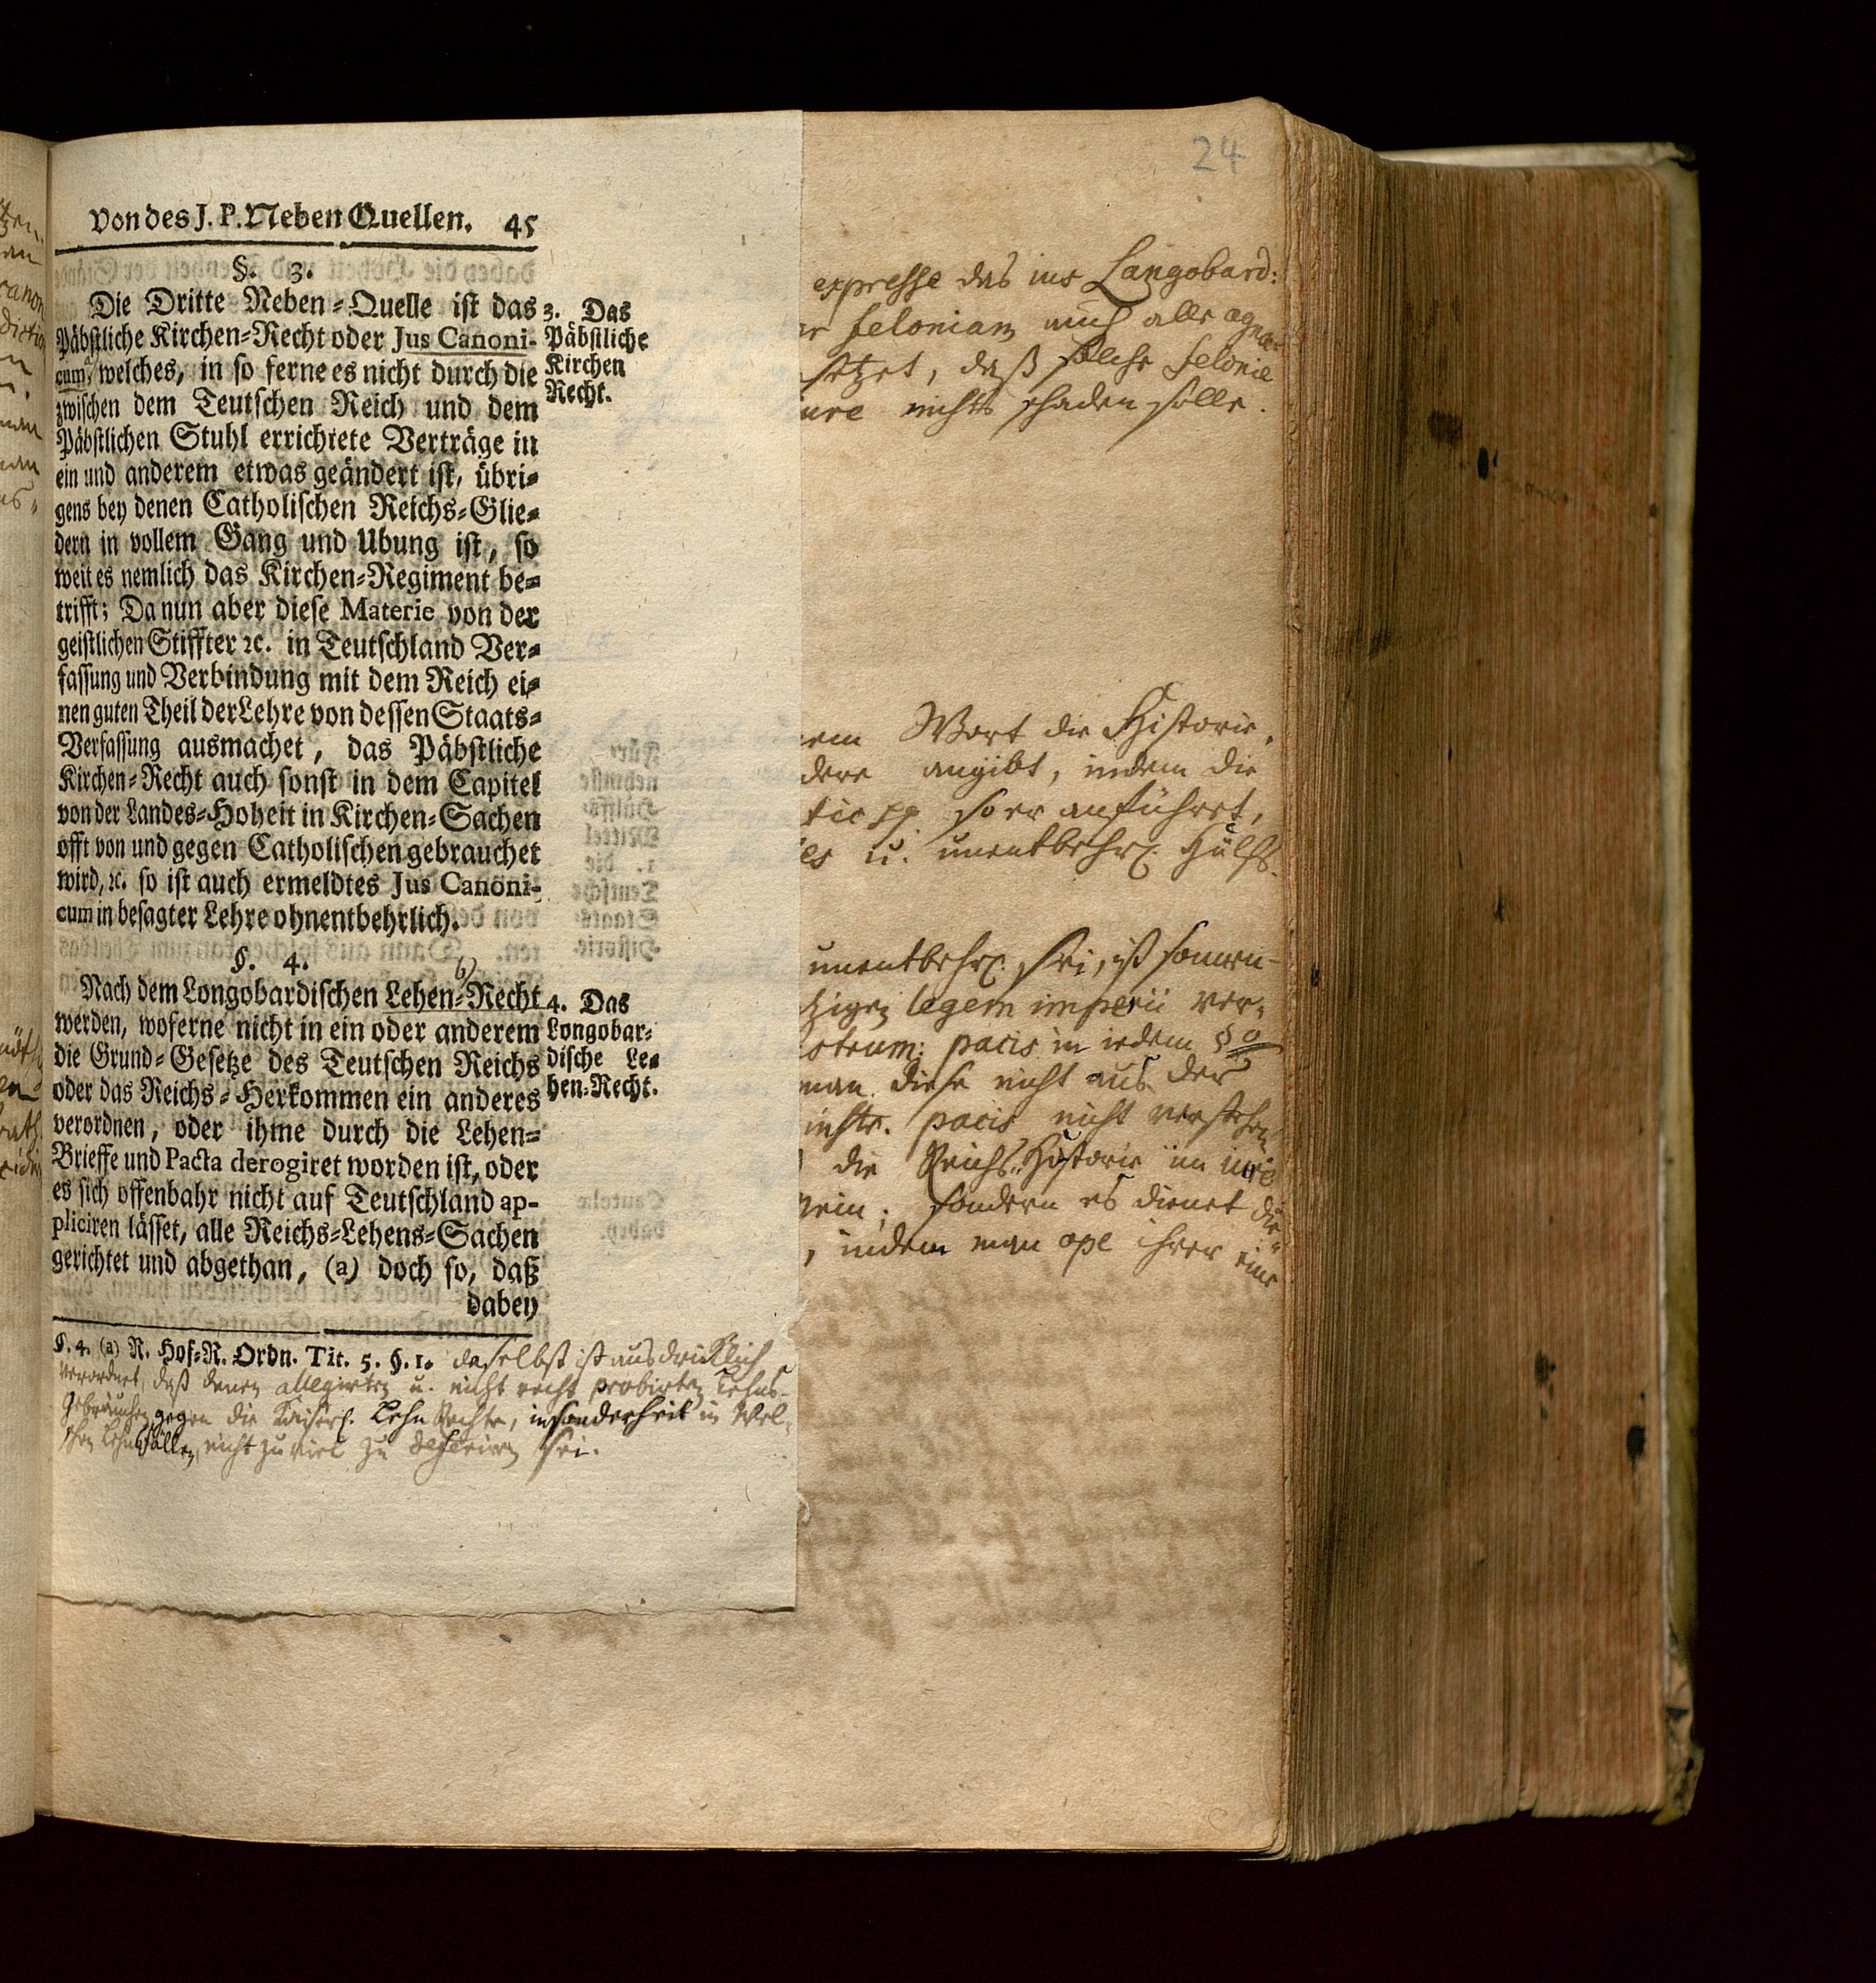 von des J. P. Neben Quellen. 45
§. 3.
Die Dritte Neben-Quelle ist das
Päbstliche Kirchen-Recht oder Jus Canoni-
cum, welches, in so ferne es nicht durch die
zwischen dem Teutschen Reich und dem
Päbstlichen Stuhl errichtete Verträge in
ein und anderem etwas geändert ist, übri-
gens bey denen Catholischen Reichs-Glie-
dern in vollem Gang und Ubung ist, so
weit es nemlich das Kirchen-Regiment be-
trifft; Da nun aber diese Materie von der
geistlichen Stiffter ꝛc. in Teutschland Ver-
fassung und Verbindung mit dem Reich ei-
nen guten Theil der Lehre von dessen Staats-
Verfassung ausmachet, das Päbstliche
Kirchen-Recht auch sonst in dem Capitel
von der Landes-Hoheit in Kirchen-Sachen
offt von und gegen Catholischen gebrauchet
wird, ꝛc. so ist auch ermeldtes Jus Canoni-
cum in besagter Lehre ohnentbehrlich.
3. Das
Päbstliche
Kirchen
Recht.
§. 4.
b)
Nach dem Longobardischen Lehen-Recht
werden, woferne nicht in ein oder anderem
die Grund-Gesetze des Teutschen Reichs
oder das Reichs-Herkommen ein anderes
verordnen, oder ihme durch die Lehen-
Brieffe und Pacta derogiret worden ist, oder
es sich offenbahr nicht auf Teutschland ap-
pliciren lässet, alle Reichs-Lehens-Sachen
gerichtet und abgethan, (a) doch so, daß
dabey
4. Das
Longobar-
dische Le-
hen-Recht.
§. 4. (a) R. Hof-R. Ordn. Tit. 5. §. 1. daselbst ist ausdrücklich
verordnet, daß denen allegirten u. nicht recht probirten Lehns-
Gebräuchen gegen die Kaiserl. Lehn Rechte, insonderheit in Wel-
schen Lehnsfällen, nicht zu viel zu deferiren sei.
24
expresse das ius Langobard:
feloniam auch alle agna-
setzet, daß solche felonie
ure nichts schaden solle.
em Wort die Historie,
dere angibt, indem die
so er anführet,
es u. unentbehrl. Hülfs-
unentbehrl. sei, ist
legem imperii ver-
strum: pacis in iedem §o
man diese nicht aus der
instr. pacis nicht verstehen
die Reichs-Historie im iure
sondern es dienet die-
, indem man ope ihrer eine